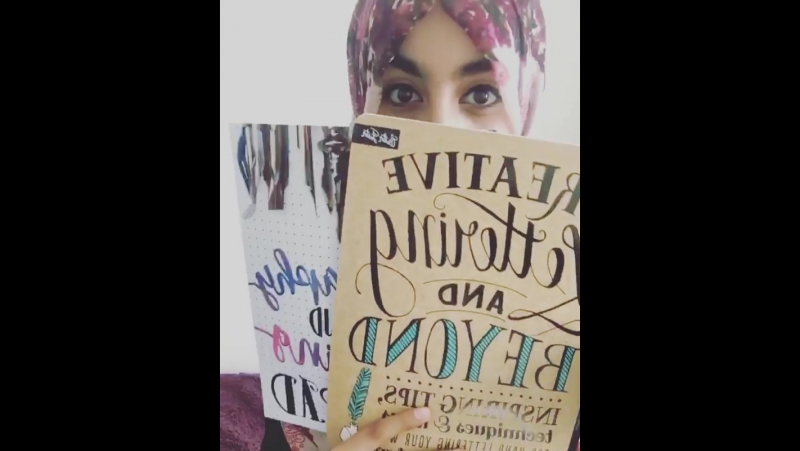 Walter Foster
REATIVE
Lettering
AND
BEYOND
INSPIRING TIPS,
techniques &
HAND LETTERING YOUR W
aphy
ND
ing
PAD